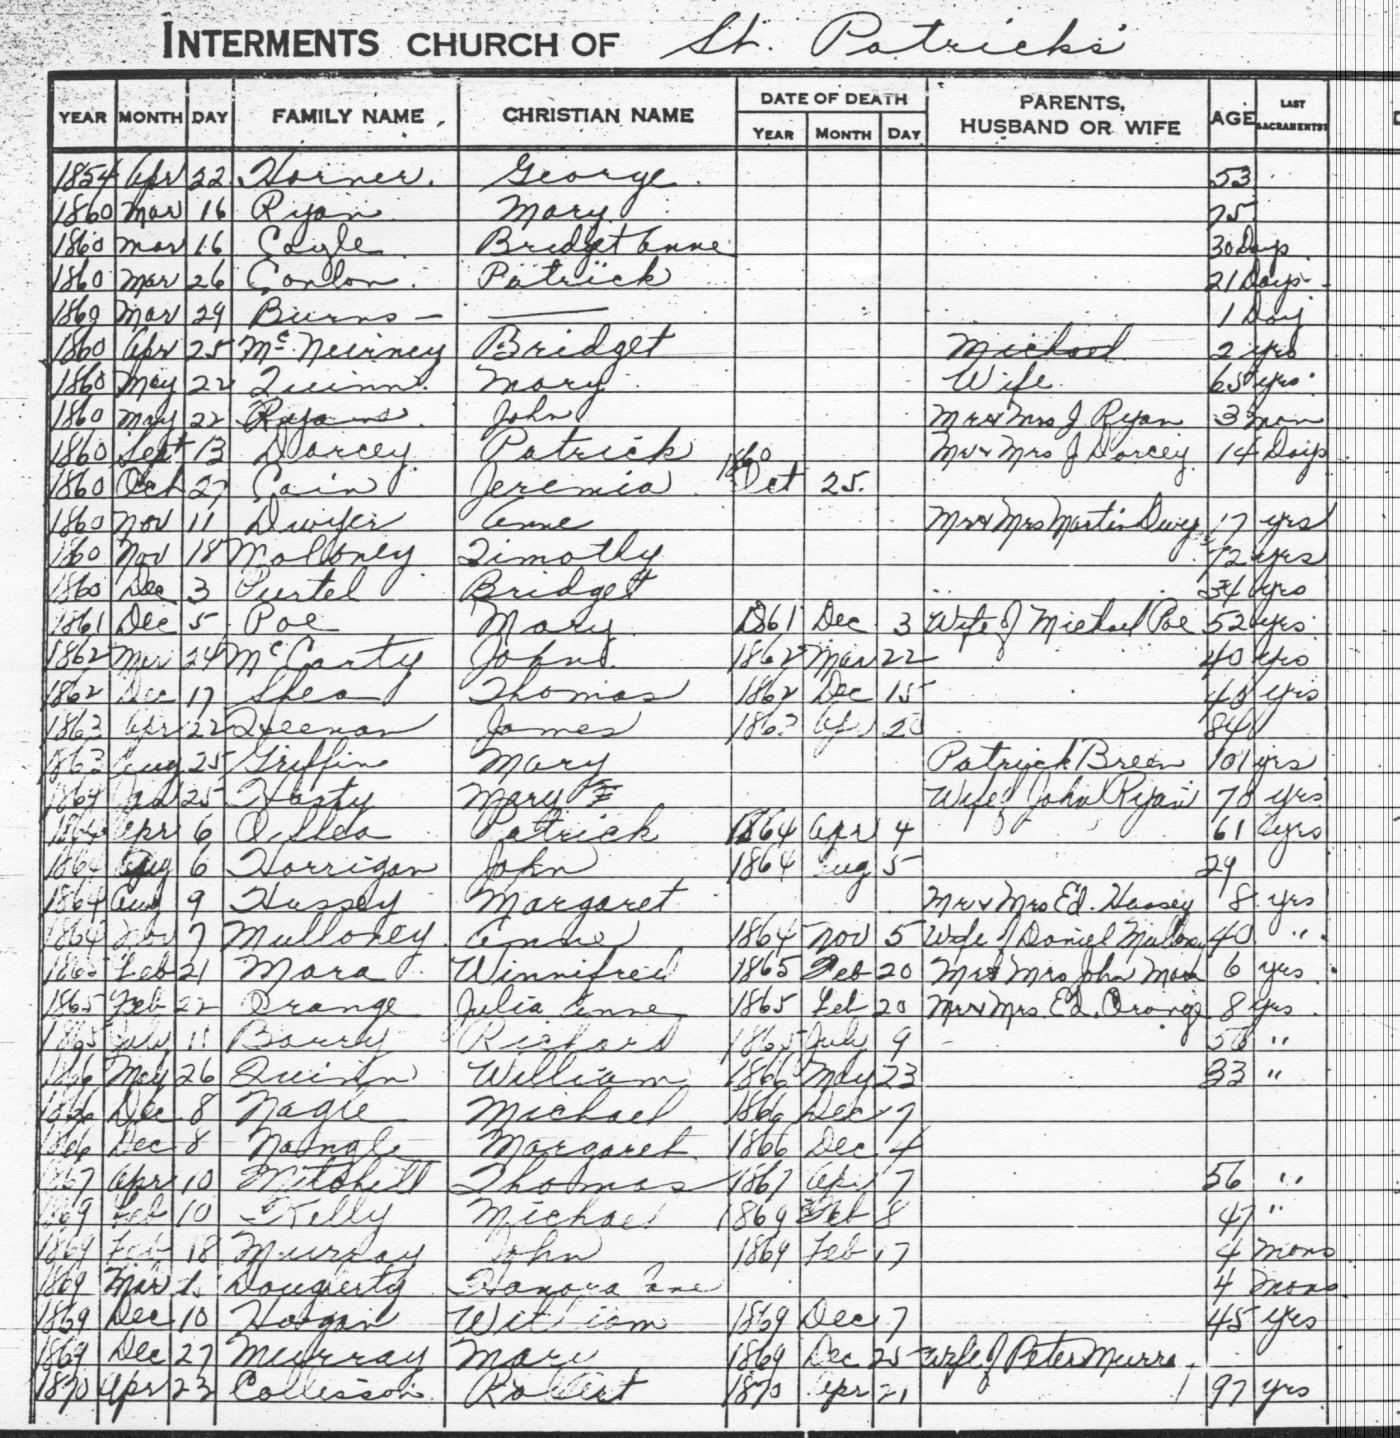 INTERMENTS CHURCH OF St. Patricks'
YEAR MONTH DAY FAMILY NAME CHRISTIAN NAME DATE OF DEATH YEAR MONTH DAY PARENTS, HUSBAND OR WIFE AGE LAST SACRAMENTS
1854 Apr 22 Horner George 53
1860 Mar 16 Ryan Mary 75
1860 Mar 16 Bridget Anne 30 Days
1860 Mar 26 Conlon Patrick 21 Days
1860 Mar 29 Burns — — 1 Day
1860 Apr 25 McNeirney Bridget Michael 2 yrs
1860 May 22 Quinn Mary Wife 65 yrs
1860 May 22 Ryan John Mr & Mrs J Ryan 3 mon
1860 Sept 13 Darcey Patrick Mr & Mrs J Darcey 14 Days
1860 Oct 27 Cain Jeremia 1860 Oct 25
1860 Nov 11 Dwyer Anne Mr & Mrs Martin 17 yrs
1860 Nov 18 Moloney Timothy 72 yrs
1860 Dec 3 Purtel Bridget 34 yrs
1861 Dec 5 Poe Mary 1861 Dec 3 Wife of Michael Poe 52 yrs
1862 Mar 24 McCarty John 1862 Mar 22 40 yrs
1862 Dec 17 Shea Thomas 1862 Dec 15 40 yrs
1863 Apr 22 Heenan James 1863 Ap 20 84
1863 Aug 25 Griffin Mary Patrick Breen 101 yrs
1864 Jan 25 Hasty Mary Wife of John Ryan 70 yrs
1864 Apr 6 O'Shea Patrick 1864 Apr 4 61 yrs
1864 Aug 6 Horrigan John 1864 Aug 5 29
1864 Aug 9 Hussey Margaret Mr & Mrs Ed. Hussey 8 yrs
1864 Nov 7 Mulloney Anne 1864 Nov 5 Wife of Daniel 40 "
1865 Feb 21 Mara Winnifred 1865 Feb 20 Mr & Mrs John Mara 6 yrs
1865 Feb 22 Orange Julia Anne 1865 Feb 20 Mr & Mrs Ed. Orange 8 yrs
1865 July 11 Barry Richard 1865 July 9 50 "
1866 May 26 Quinn William 1866 May 23 33 "
1866 Dec 8 Nagle Michael 1866 Dec 7
1866 Dec 8 Margaret 1866 Dec 4
1867 Apr 10 Mitchell Thomas 1867 Apr 7 56 "
1869 Feb 10 Kelly Michael 1869 Feb 8 47 "
1869 Feb 18 Murray John 1869 Feb 17 4 mons
1869 Mar Dougherty Hanora Ane 4 mons
1869 Dec 10 Hogan William 1869 Dec 7 45 yrs
1869 Dec 27 Murray Mary 1869 Dec 25 Wife of Peter
1870 Apr 23 Collisson Robert 1870 Apr 21 97 yrs